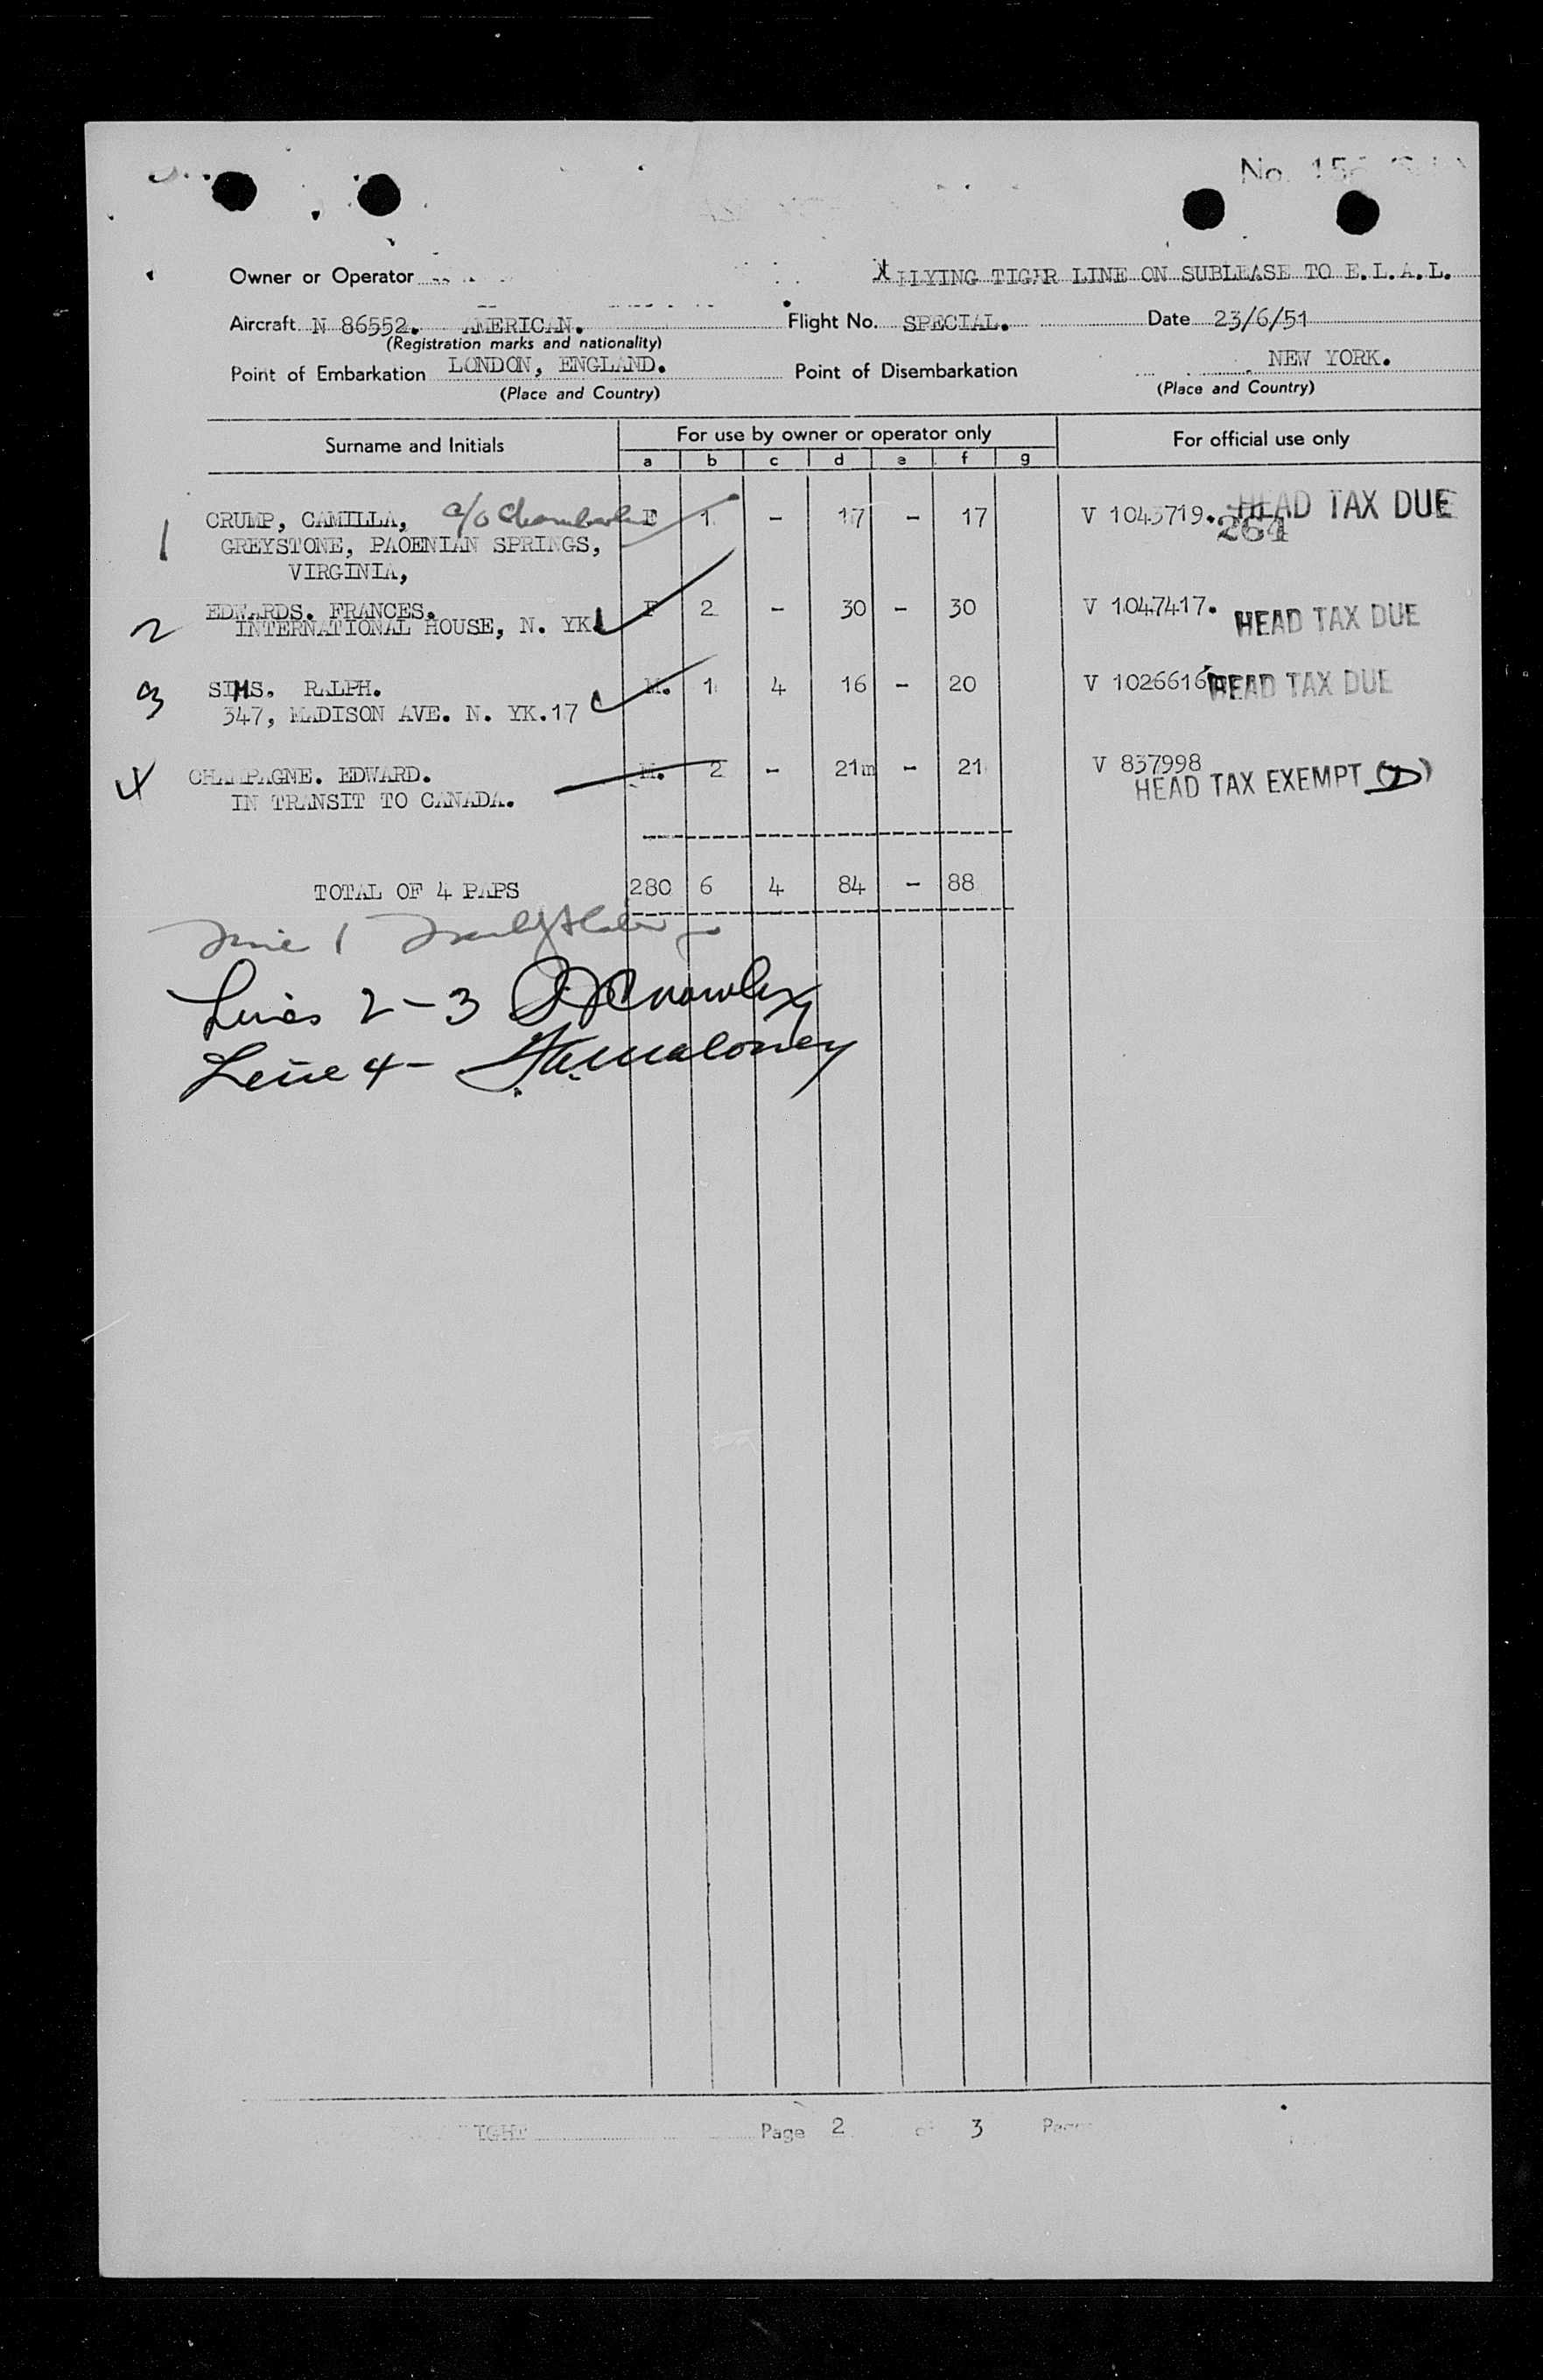 No.
Owner or Operator FLYING TIGER LINE ON SUBLEASE TO E.L.A.L.
Aircraft N 86552. AMERICAN. Flight No. SPECIAL. Date 23/6/51
(Registration marks and nationality)
Point of Embarkation LONDON, ENGLAND. Point of Disembarkation NEW YORK.
(Place and Country) (Place and Country)
Surname and Initials For use by owner or operator only For official use only
a b c d e f g
1 CRUMP, CAMILLA, c/o F 1 - 17 - 17 V 1043719. HEAD TAX DUE
GREYSTONE, PAOENIAN SPRINGS, 264
VIRGINIA,
2 EDWARDS. FRANCES. F 2 - 30 - 30 V 1047417. HEAD TAX DUE
INTERNATIONAL HOUSE, N. YK.
3 SIMS, RALPH. M. 1 4 16 - 20 V 1026616 HEAD TAX DUE
347, MADISON AVE. N. YK.17
4 CHAMPAGNE. EDWARD. M. 2 - 21m - 21 V 837998
IN TRANSIT TO CANADA. HEAD TAX EXEMPT
TOTAL OF 4 PAPS 280 6 4 84 - 88
Line 1
Lines 2-3
Line 4- Maloney
Page 2 of 3 Pages